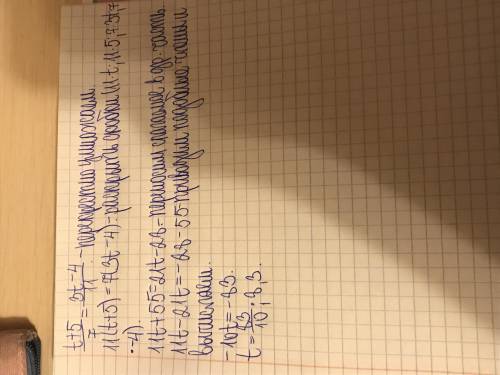 t+5/7 = 3t-4/11 - перекрестно умножаем
11(t+5) = 7(3t-4) - раскрыть скобки (11·t; 11·5; 7·3t; 7·
·-4).
11t+55=21t-28 - переносим слагаемые в др. часть
11t-21t=-28-55 - приводим подобные члены и
вычисляем.
-10t=-83.
t=83/10; 8,3.